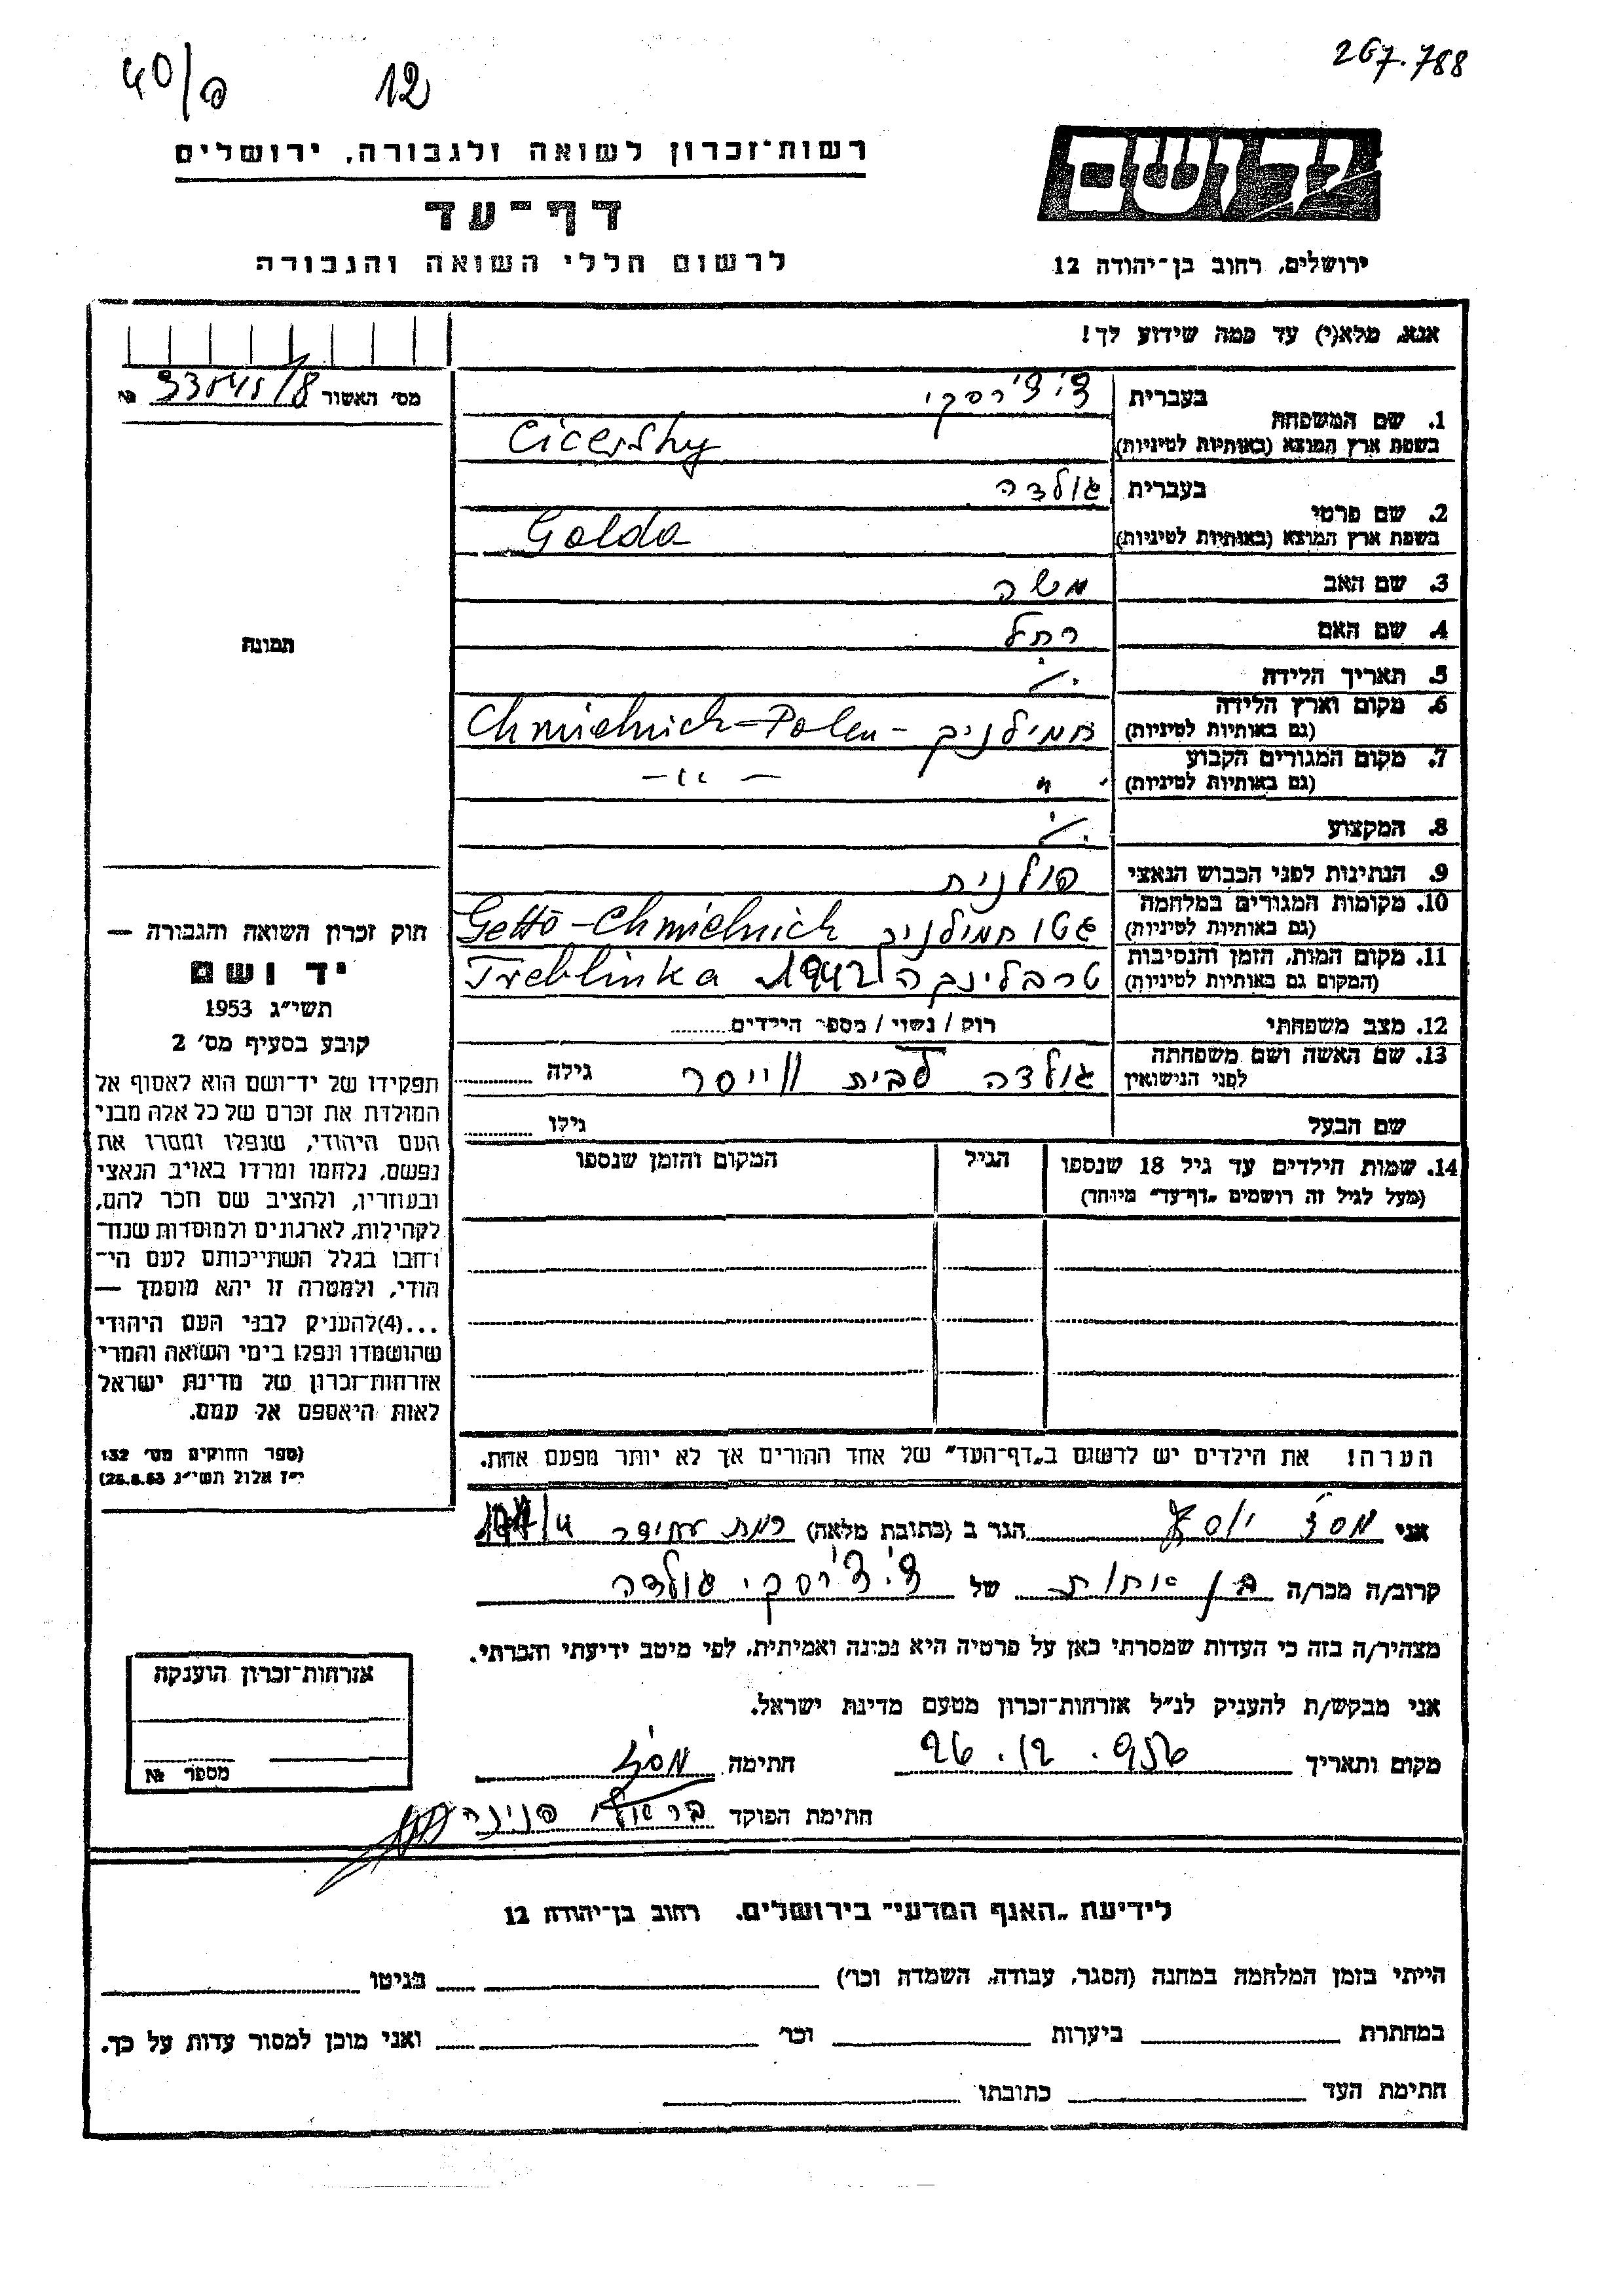 40/פ 12 267.788
יד ושם
רשות־זכרון לשואה ולגבורה, ירושלים
דף־עד
לרשום חללי השואה והגבורה
ירושלים, רחוב בן־יהודה 12
אנא, מלא(י) עד כמה שידוע לך!
מס׳ האשור №
1. שם המשפחה בעברית צ׳יצ׳רסקי
בשפת ארץ המוצא (באותיות לטיניות) Cicersky
2. שם פרטי בעברית גולדה
בשפת ארץ המוצא (באותיות לטיניות) Golda
3. שם האב משה
4. שם האם רחל
5. תאריך הלידה ./.
6. מקום וארץ הלידה
(גם באותיות לטיניות) חמילניק - Chmielnick-Polen
7. מקום המגורים הקבוע
(גם באותיות לטיניות) " — " —
8. המקצוע ./.
9. הנתינות לפני הכבוש הנאצי פולנית
10. מקומות המגורים במלחמה
(גם באותיות לטיניות) גטו חמילניק Getto-Chmielnick
11. מקום המות, הזמן והנסיבות
(המקום גם באותיות לטיניות) טרבלינקה 1942 Treblinka
12. מצב משפחתי רווק / נשוי / מספר הילדים
13. שם האשה ושם משפחתה
לפני הנישואין גולדה לבית ווייסר גילה
שם הבעל גילו
14. שמות הילדים עד גיל 18 שנספו הגיל המקום והזמן שנספו
(מעל לגיל זה רושמים „דף־עד" מיוחד)
הערה! את הילדים יש לרשום ב„דף־העד" של אחד ההורים אך לא יותר מפעם אחת.
תמונה
חוק זכרון השואה והגבורה —
יד ושם
תשי״ג 1953
קובע בסעיף מס׳ 2
תפקידו של יד־ושם הוא לאסוף אל
המולדת את זכרם של כל אלה מבני
העם היהודי, שנפלו ומסרו את
נפשם, נלחמו ומרדו באויב הנאצי
ובעוזריו, ולהציב שם וזכר להם,
לקהילות, לארגונים ולמוסדות שנח־
רחבו בגלל השתייכותם לעם הי־
הודי, ולמטרה זו יהא מוסמך —
...(4)להעניק לבני העם היהודי
שהושמדו ונפלו בימי השואה והמרי
אזרחות־זכרון של מדינת ישראל
לאות היאספם אל עמם.
(ספר החוקים מס׳ 132
י״ז אלול תשי״ג 28.8.53)
אני יוסף הגר ב (כתובת מלאה) רמת עמידר
קרוב/ה מכר/ה בן אחות של צ׳יצ׳רסקי גולדה
מצהיר/ה בזה כי העדות שמסרתי כאן על פרטיה היא נכונה ואמיתית, לפי מיטב ידיעתי והכרתי.
אני מבקש/ת להעניק לנ״ל אזרחות־זכרון מטעם מדינת ישראל.
מקום ותאריך 26.12.956 חתימה
חתימת הפוקד פנינה
אזרחות־זכרון הוענקה
מספר №
לידיעת „האגף המדעי" בירושלים, רחוב בן־יהודה 12
הייתי בזמן המלחמה במחנה (הסגר, עבודה, השמדה וכו׳) בגיטו
במחתרת ביערות וכו׳ ואני מוכן למסור עדות על כך.
חתימת העד כתובתו